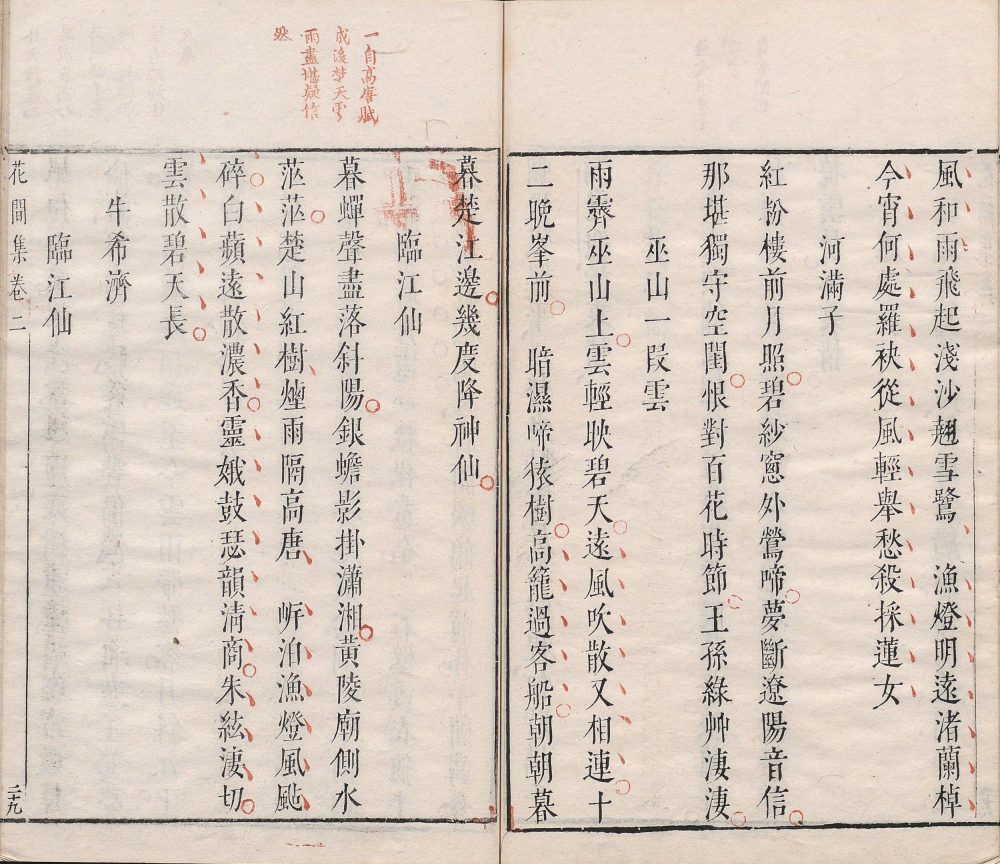 風和雨飛起淺沙翹雪鷺　漁燈明遠渚蘭棹
今宵何處羅袂從風輕舉愁殺採蓮女
河滿子
紅粉樓前月照碧紗窻外鶯啼夢斷遼陽音信
那堪獨守空閨恨對百花時節王孫綠艸淒淒
巫山一段雲
雨霽巫山上雲輕映碧天遠風吹散又相連十
二晚峯前　暗濕啼猿樹高籠過客船朝朝暮
一自高唐賦
成後楚天雲
雨盡堪疑信
然
暮楚江邊幾度降神仙
臨江仙
暮蟬聲盡落斜陽銀蟾影掛瀟湘黃陵廟側水
茫茫楚山紅樹煙雨隔高唐　岍泊漁燈風颭
碎白蘋遠散濃香靈娥鼓瑟韻清商朱絃淒切
雲散碧天長
牛希濟
臨江仙
花間集卷二
二十九